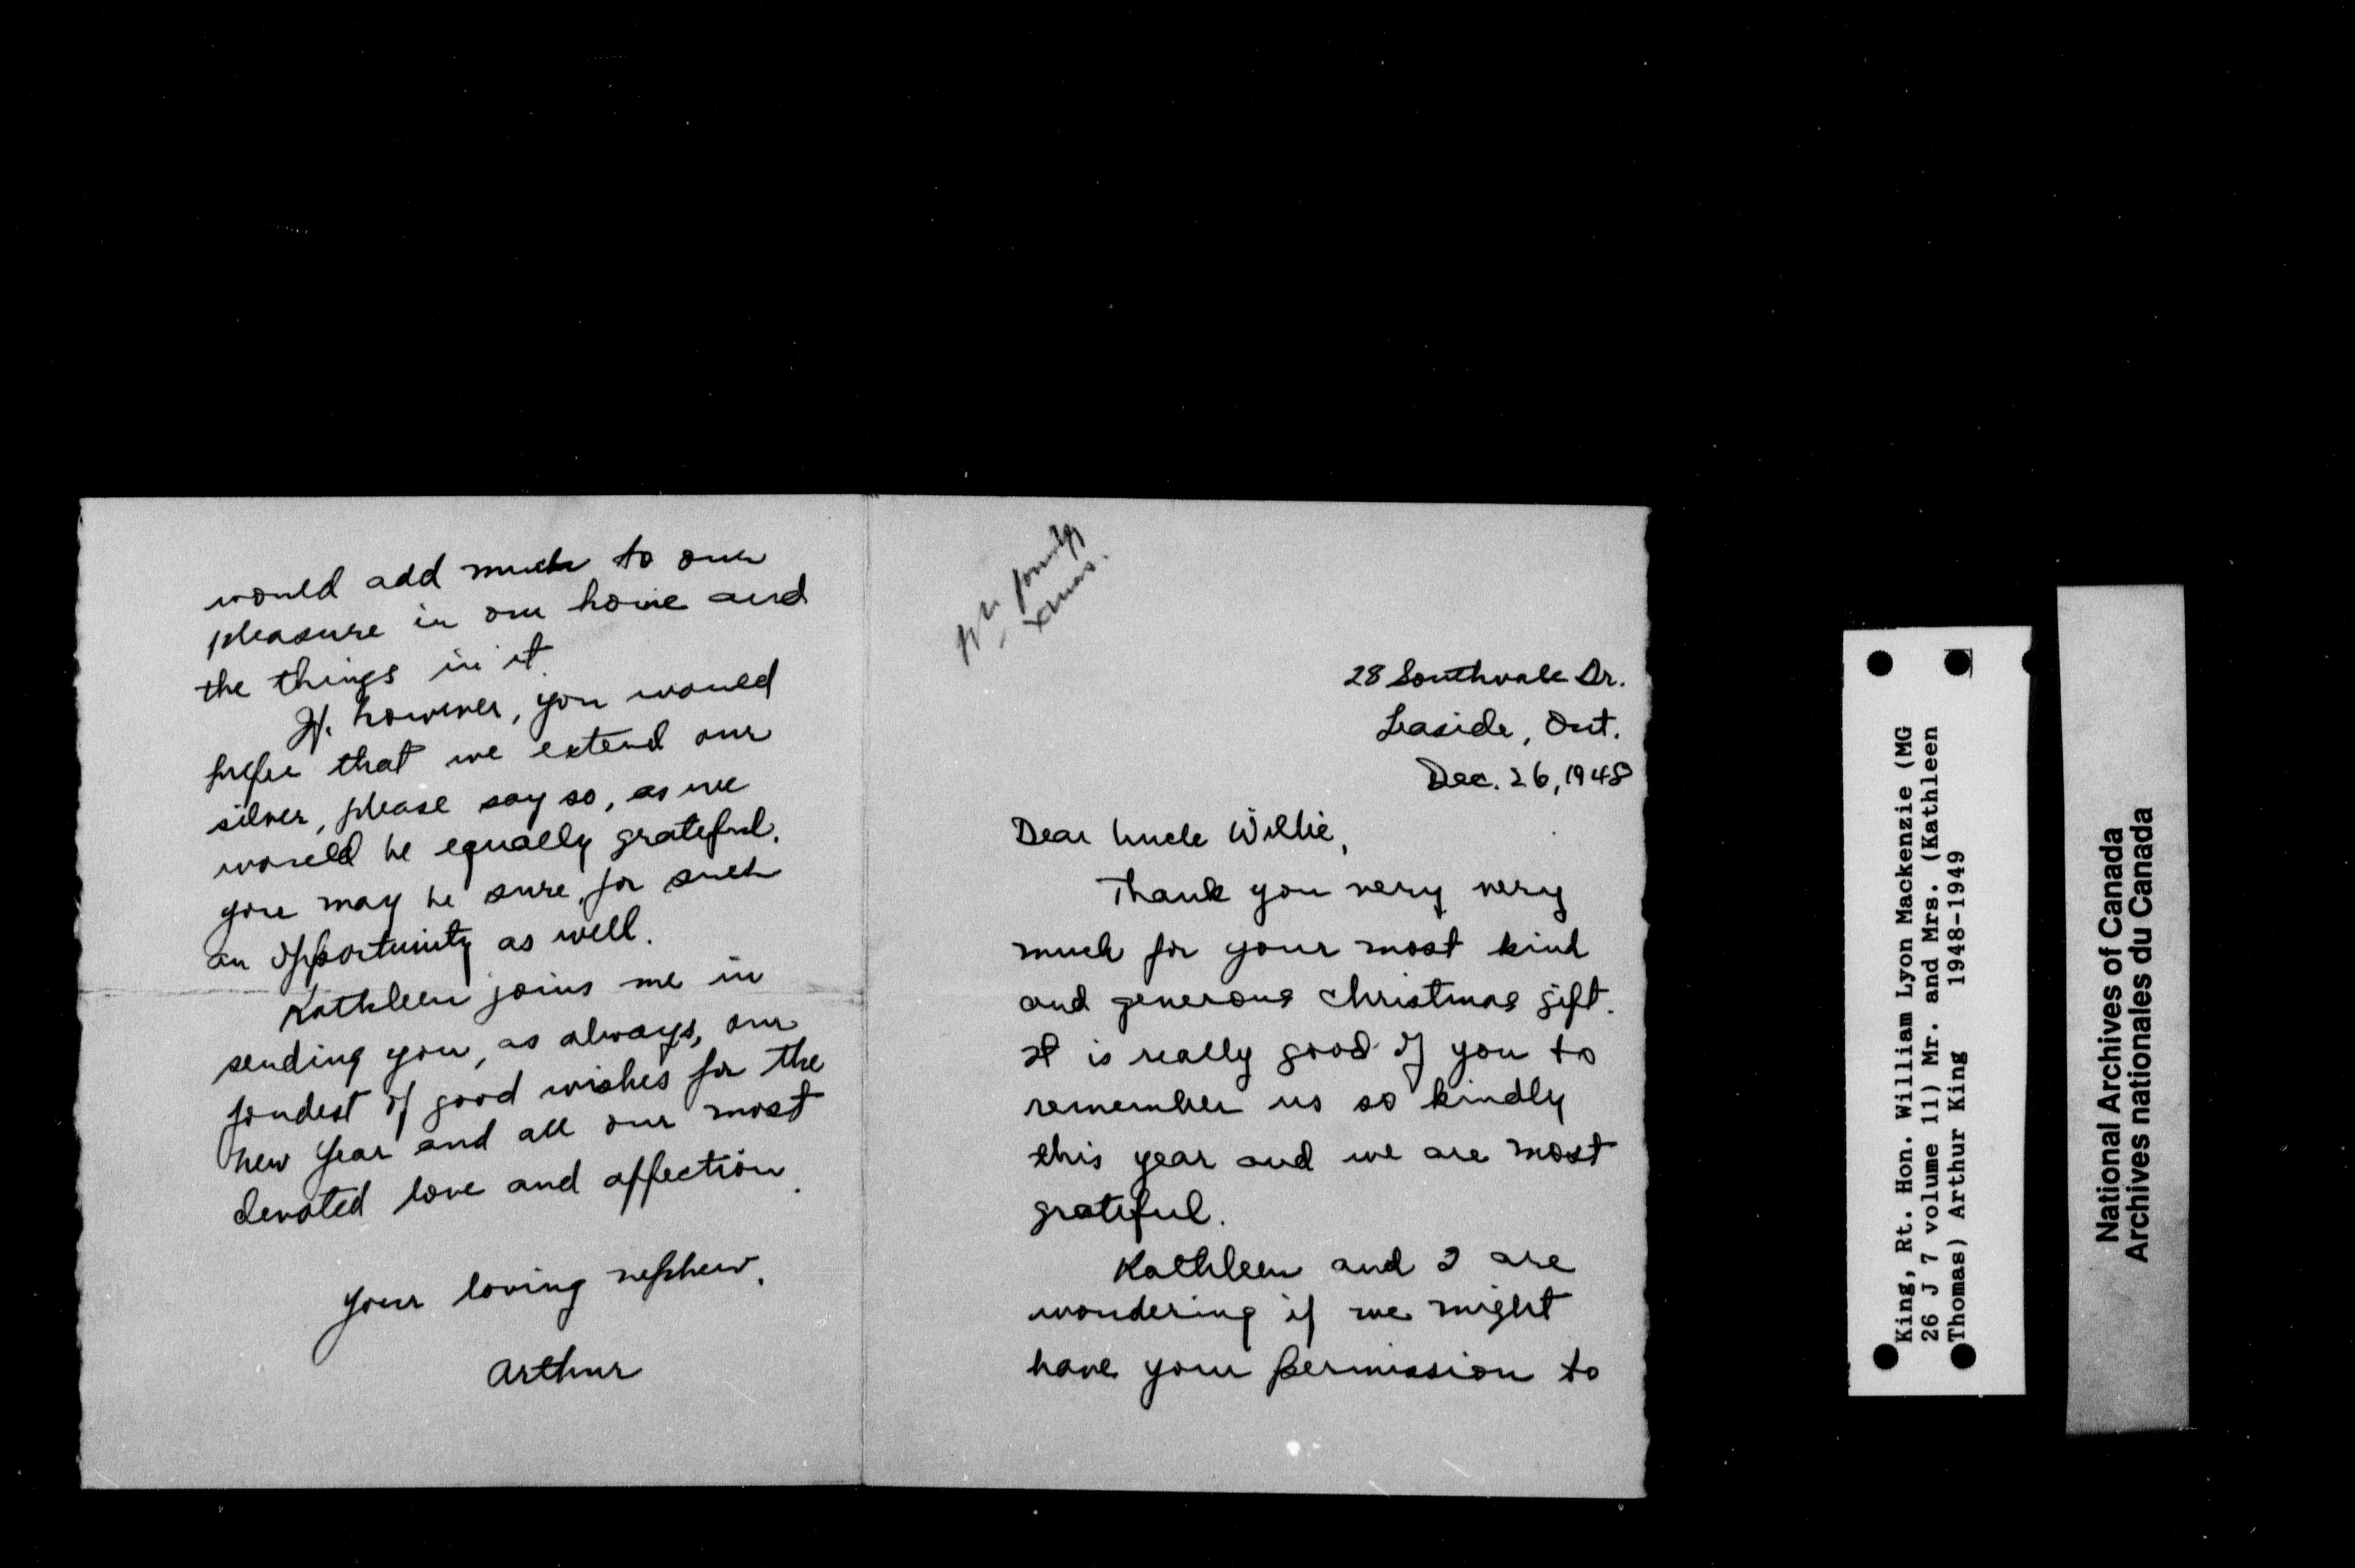 family
Xmas.
28 Southvale Dr.
Leaside, Ont.
Dec. 26, 1948
Dear Uncle Willie,
Thank you very very
much for your most kind
and generous Christmas gift.
It is really good of you to
remember us so kindly
this year and we are most
grateful.
Kathleen and I are
wondering if we might
have your permission to
would add much to our
pleasure in our home and
the things in it.
If, however, you would
prefer that we extend our
silver, please say so, as we
would be equally grateful,
you may be sure, for such
an opportunity as well.
Kathleen joins me in
sending you, as always, our
fondest of good wishes for the
New Year and all our most
devoted love and affection.
Your loving nephew,
Arthur
King, Rt. Hon. William Lyon Mackenzie (MG
26 J 7 volume 11) Mr. and Mrs. (Kathleen
Thomas) Arthur King 1948-1949
National Archives of Canada
Archives nationales du Canada